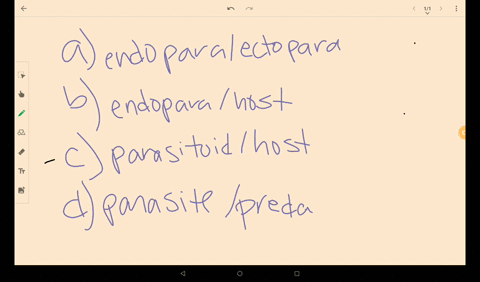 1/1
a) endopara/ectopara
b) endopara/host
c) parasitoid/host
d) parasite/preda
Tт